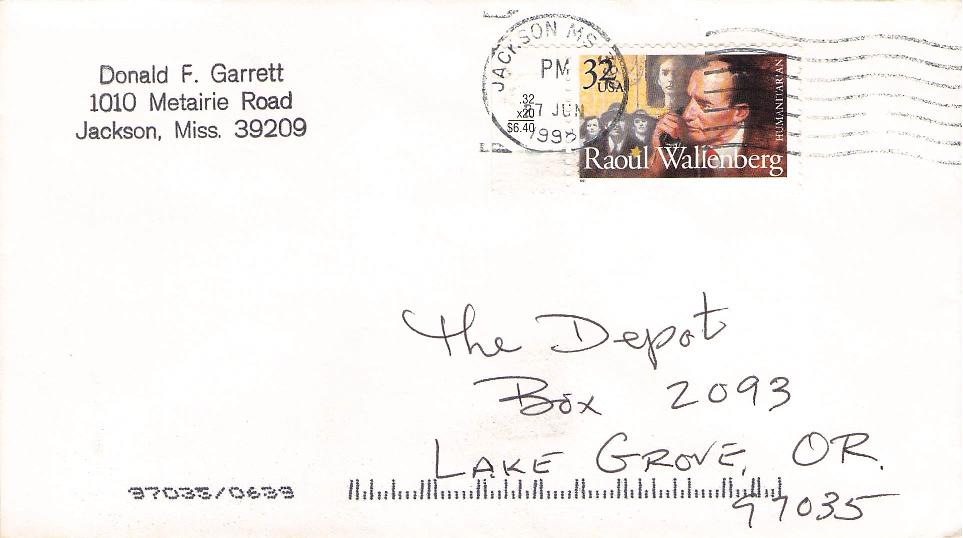 Donald F. Garrett
1010 Metairie Road
Jackson, Miss. 39209
JACKSON MS
PM
27 JUN
32
USA
HUMANITARIAN
.32
x20
$6.40
Raoul Wallenberg
The Depot
Box 2093
LAKE GROVE, OR.
97035
97035/0639